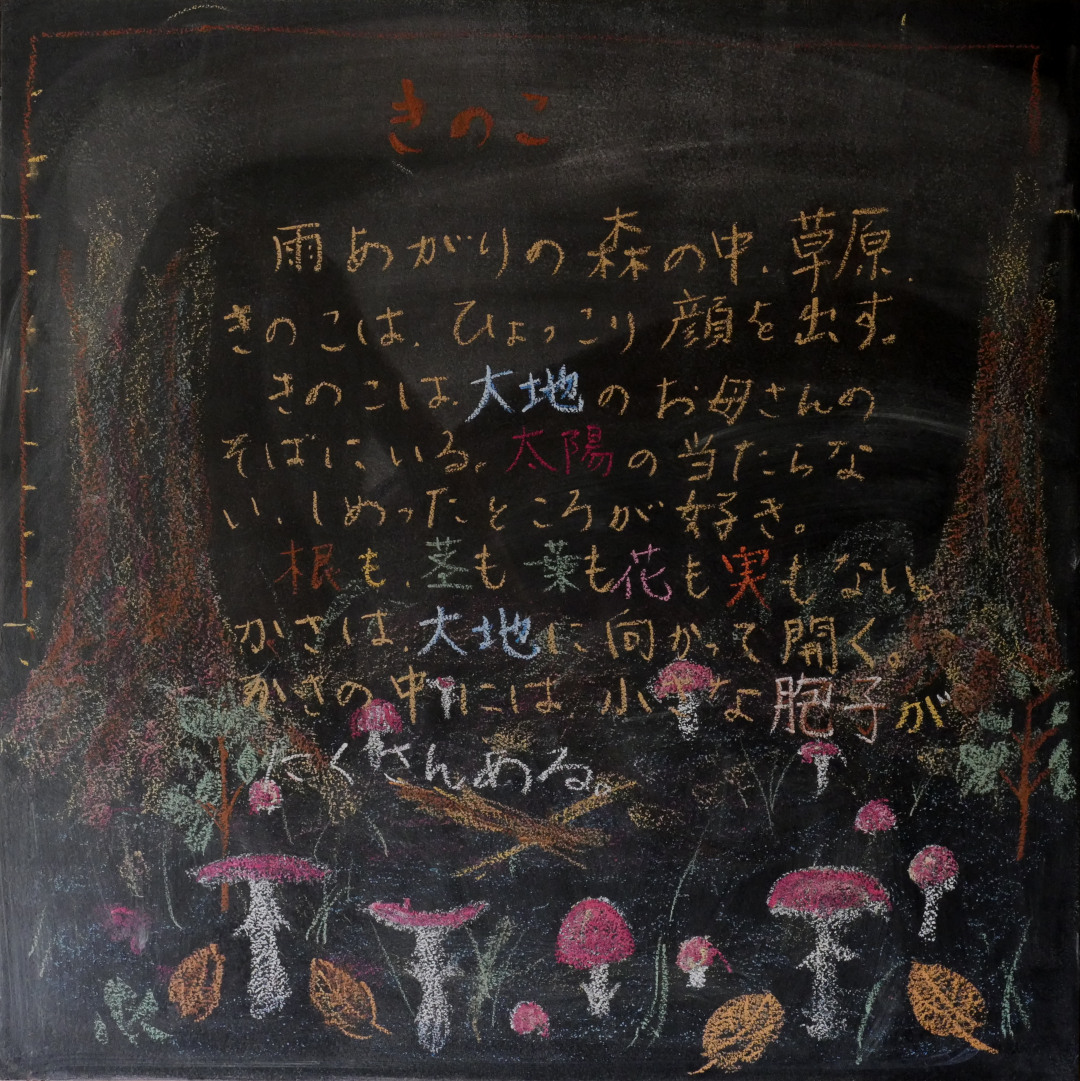 きのこ
雨あがりの森の中、草原、
きのこは、ひょっこり顔を出す。
きのこは、大地のお母さんの
そばにいる。太陽の当たらな
い、しめったところが好き。
根も、茎も葉も花も実もない。
かさは、大地に向かって開く。
かさの中には、小さな胞子が
たくさんある。